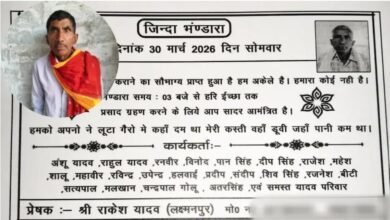 जिन्दा भण्डारा
दिनांक 30 मार्च 2026 दिन सोमवार
कराने का सौभाग्य प्राप्त हुआ है हम अकेले है। हमारा कोई नही है।
भण्डारा समय : 03 बजे से हरि ईच्छा तक
प्रसाद ग्रहण करने के लिए आप सादर आमंत्रित है।
हमको अपनो ने लूटा गैरो मे कहाँ दम था मेरी कस्ती वहाँ डूवी जहाँ पानी कम था।
कार्यकर्ताः-
अंशू यादव, राहुल यादव, रनवीर, विनोद, पान सिंह, दीप सिंह, राजेश, महेश
शालू, महावीर, रविन्द्र, उपेन्द्र, हलवाई, प्रदीप, संदीप, शिव सिंह, रजनेश, बीटी,
सत्यपाल, मलखान, चन्द्रपाल गोलू, अतरसिंह, एवं समस्त यादव परिवार
प्रेषक : - श्री राकेश यादव (लक्ष्मनपुर) मो0